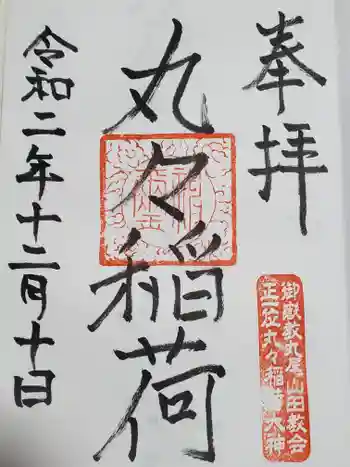 奉拝
丸々稲荷
令和二年十二月十日
御嶽教丸尾山田教会
正一位丸々稲荷大神